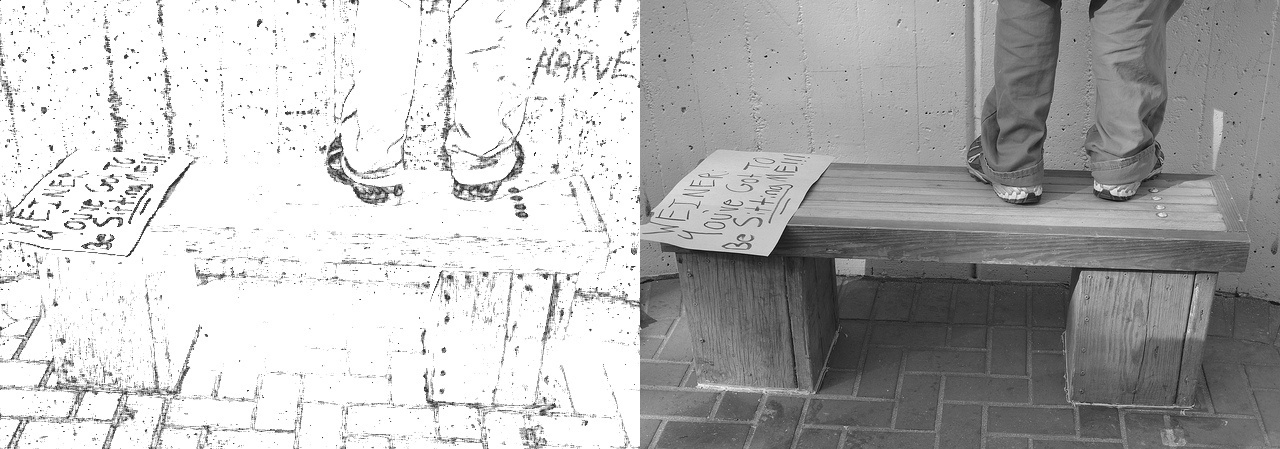 HARVE
WEINER
You've Got TO
Be Sitting ME!!!
WEINER
You've Got TO
Be Sitting ME!!!